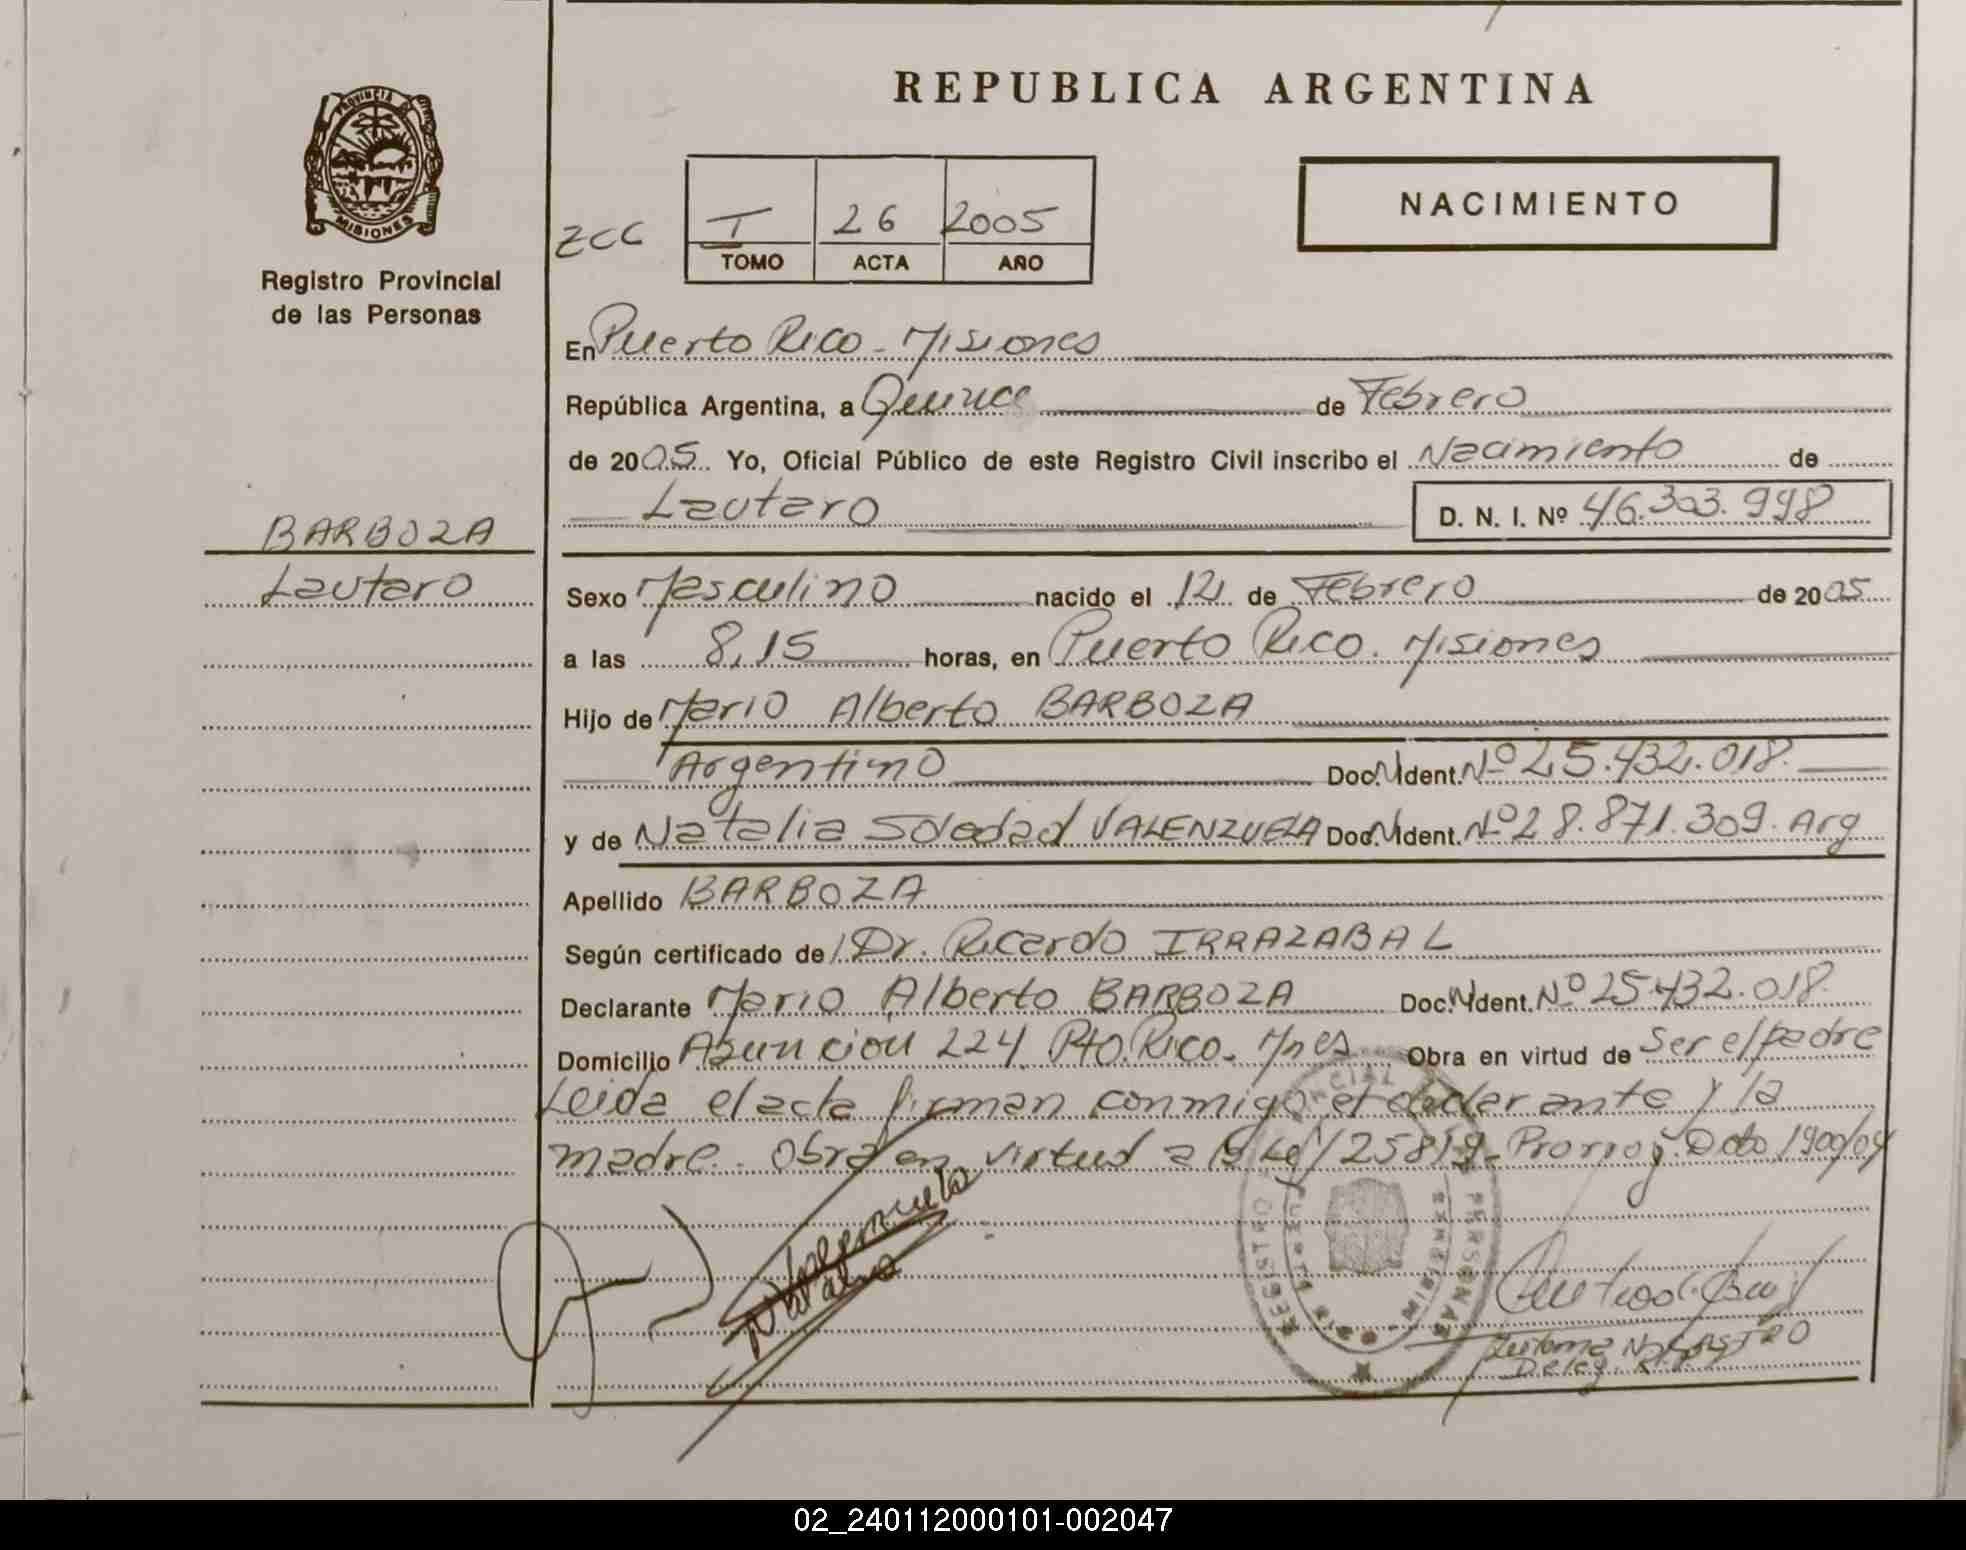 REPUBLICA ARGENTINA
PROVINCIA DE
MISIONES
Registro Provincial
de las Personas
NACIMIENTO
T 26 2005
TOMO ACTA AÑO
En Puerto Rico - Misiones
República Argentina, a Quince de Febrero
de 2005 Yo, Oficial Público de este Registro Civil inscribo el Nacimiento de
Lautaro D. N. I. Nº 46.303.998
BARBOZA
Lautaro
Sexo Masculino nacido el 12 de Febrero de 2005
a las 8,15 horas, en Puerto Rico. Misiones
Hijo de Mario Alberto BARBOZA
Argentino Doc. Ident. Nº 25.432.018.
y de Natalia Soledad VALENZUELA Doc. Ident. Nº 28.871.309. Arg
Apellido BARBOZA
Según certificado de Dr. Ricardo IRRAZABAL
Declarante Mario Alberto BARBOZA Doc. Ident. Nº 25.432.018.
Domicilio Asunción 224 Pto. Rico. Mnes Obra en virtud de Ser el padre
Leida el acta firman conmigo el declarante y la
madre. Obra en virtud a la Ley 25819 - Dcto 1900/04
Valenzuela
Natalia
REGISTRO PERSONAS
02_240112000101-002047